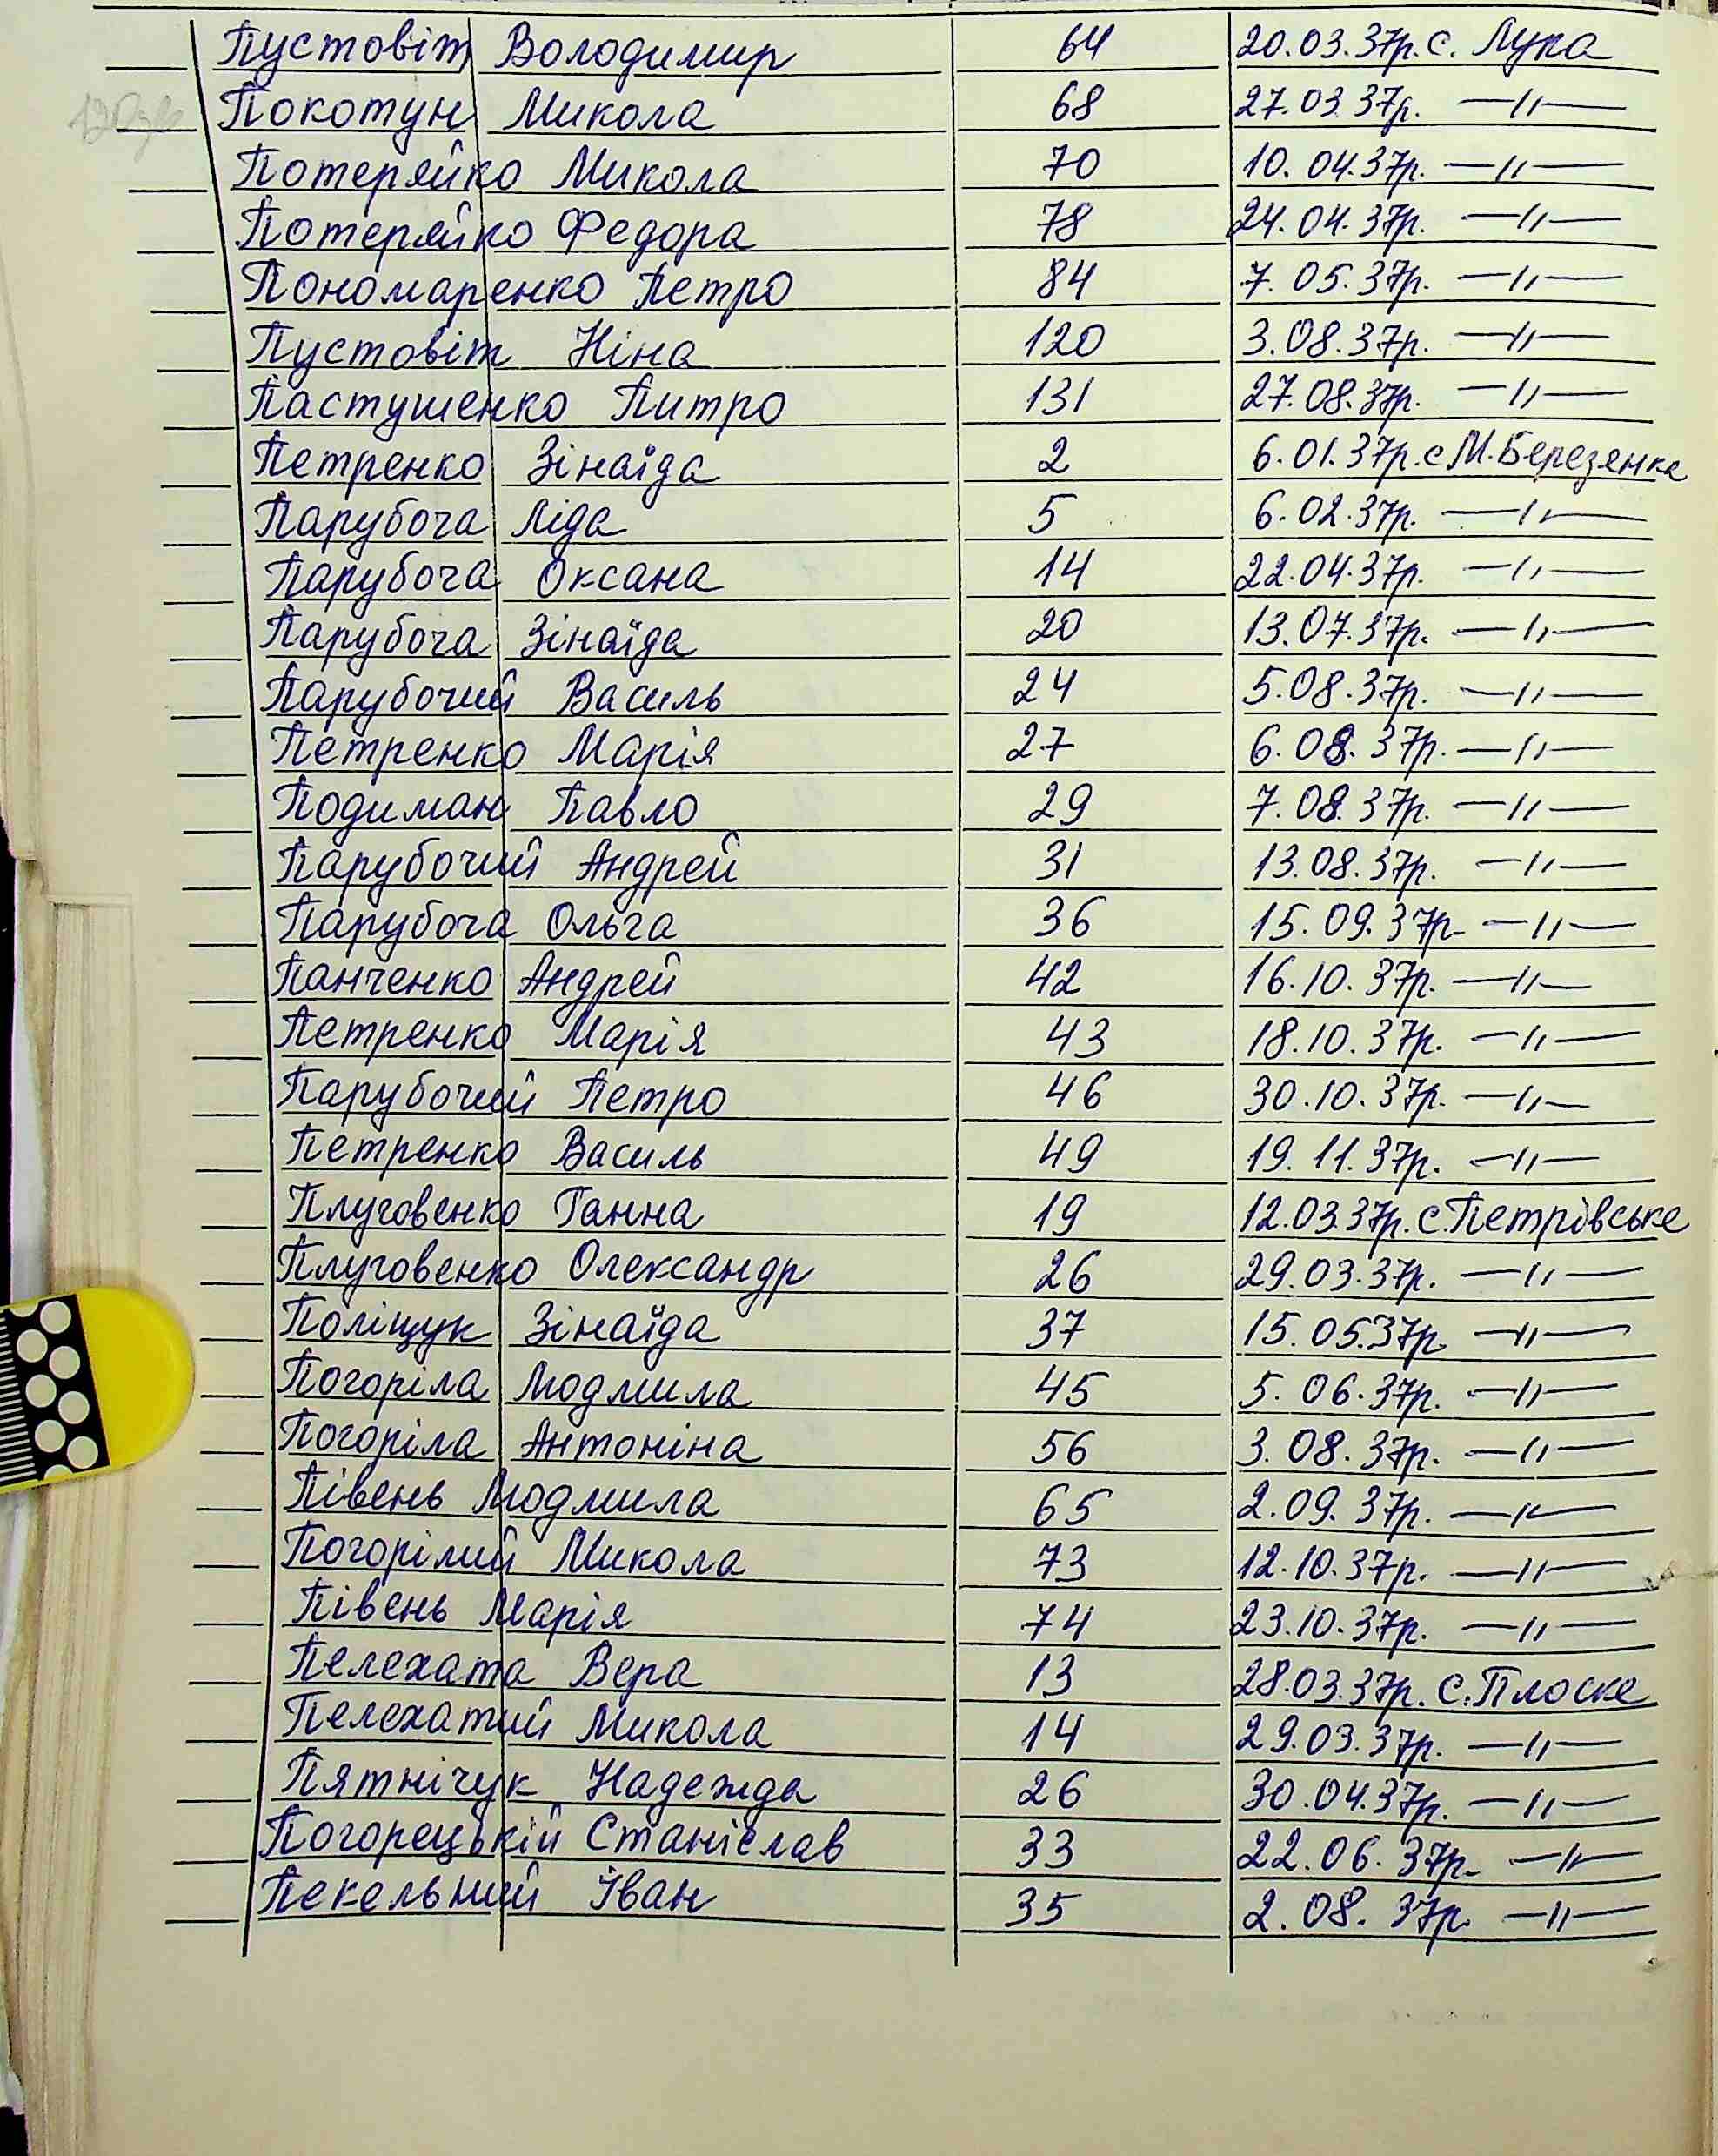 Пустовіт Володимир 64 20.03.37р. с. Лука
Покотун Микола 68 27.03.37р. —"—
Потеряйко Микола 70 10.04.37р. —"—
Потеряйко Федора 78 24.04.37р. —"—
Пономаренко Петро 84 7.05.37р. —"—
Пустовіт Ніна 120 3.08.37р. —"—
Пастушенко Питро 131 27.08.37р. —"—
Петренко Зінаїда 2 6.01.37р. с М.Березянка
Парубоча Ліда 5 6.02.37р. —"—
Парубоча Оксана 14 22.04.37р. —"—
Парубоча Зінаїда 20 13.07.37р. —"—
Парубочий Василь 24 5.08.37р. —"—
Петренко Марія 27 6.08.37р. —"—
Подиман Павло 29 7.08.37р. —"—
Парубочий Андрей 31 13.08.37р. —"—
Парубоча Ольга 36 15.09.37р. —"—
Панченко Андрей 42 16.10.37р. —"—
Петренко Марія 43 18.10.37р. —"—
Парубочий Петро 46 30.10.37р. —"—
Петренко Василь 49 19.11.37р. —"—
Плуговенко Ганна 19 12.03.37р. с.Петрівське
Плуговенко Олександр 26 29.03.37р. —"—
Поліщук Зінаїда 37 15.05.37р. —"—
Погоріла Людмила 45 5.06.37р. —"—
Погоріла Антоніна 56 3.08.37р. —"—
Півень Людмила 65 2.09.37р. —"—
Погорілий Микола 73 12.10.37р. —"—
Півень Марія 74 23.10.37р. —"—
Пелехата Вера 13 28.03.37р. с.Плоске
Пелехатий Микола 14 29.03.37р. —"—
Пятнічук Надежда 26 30.04.37р. —"—
Погорецькій Станіслав 33 22.06.37р. —"—
Пекельний Іван 35 2.08.37р. —"—